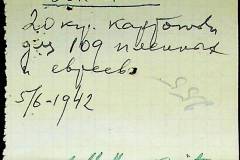 20 кг. картошки
для 109 пленных
и евреев
5/6-1942